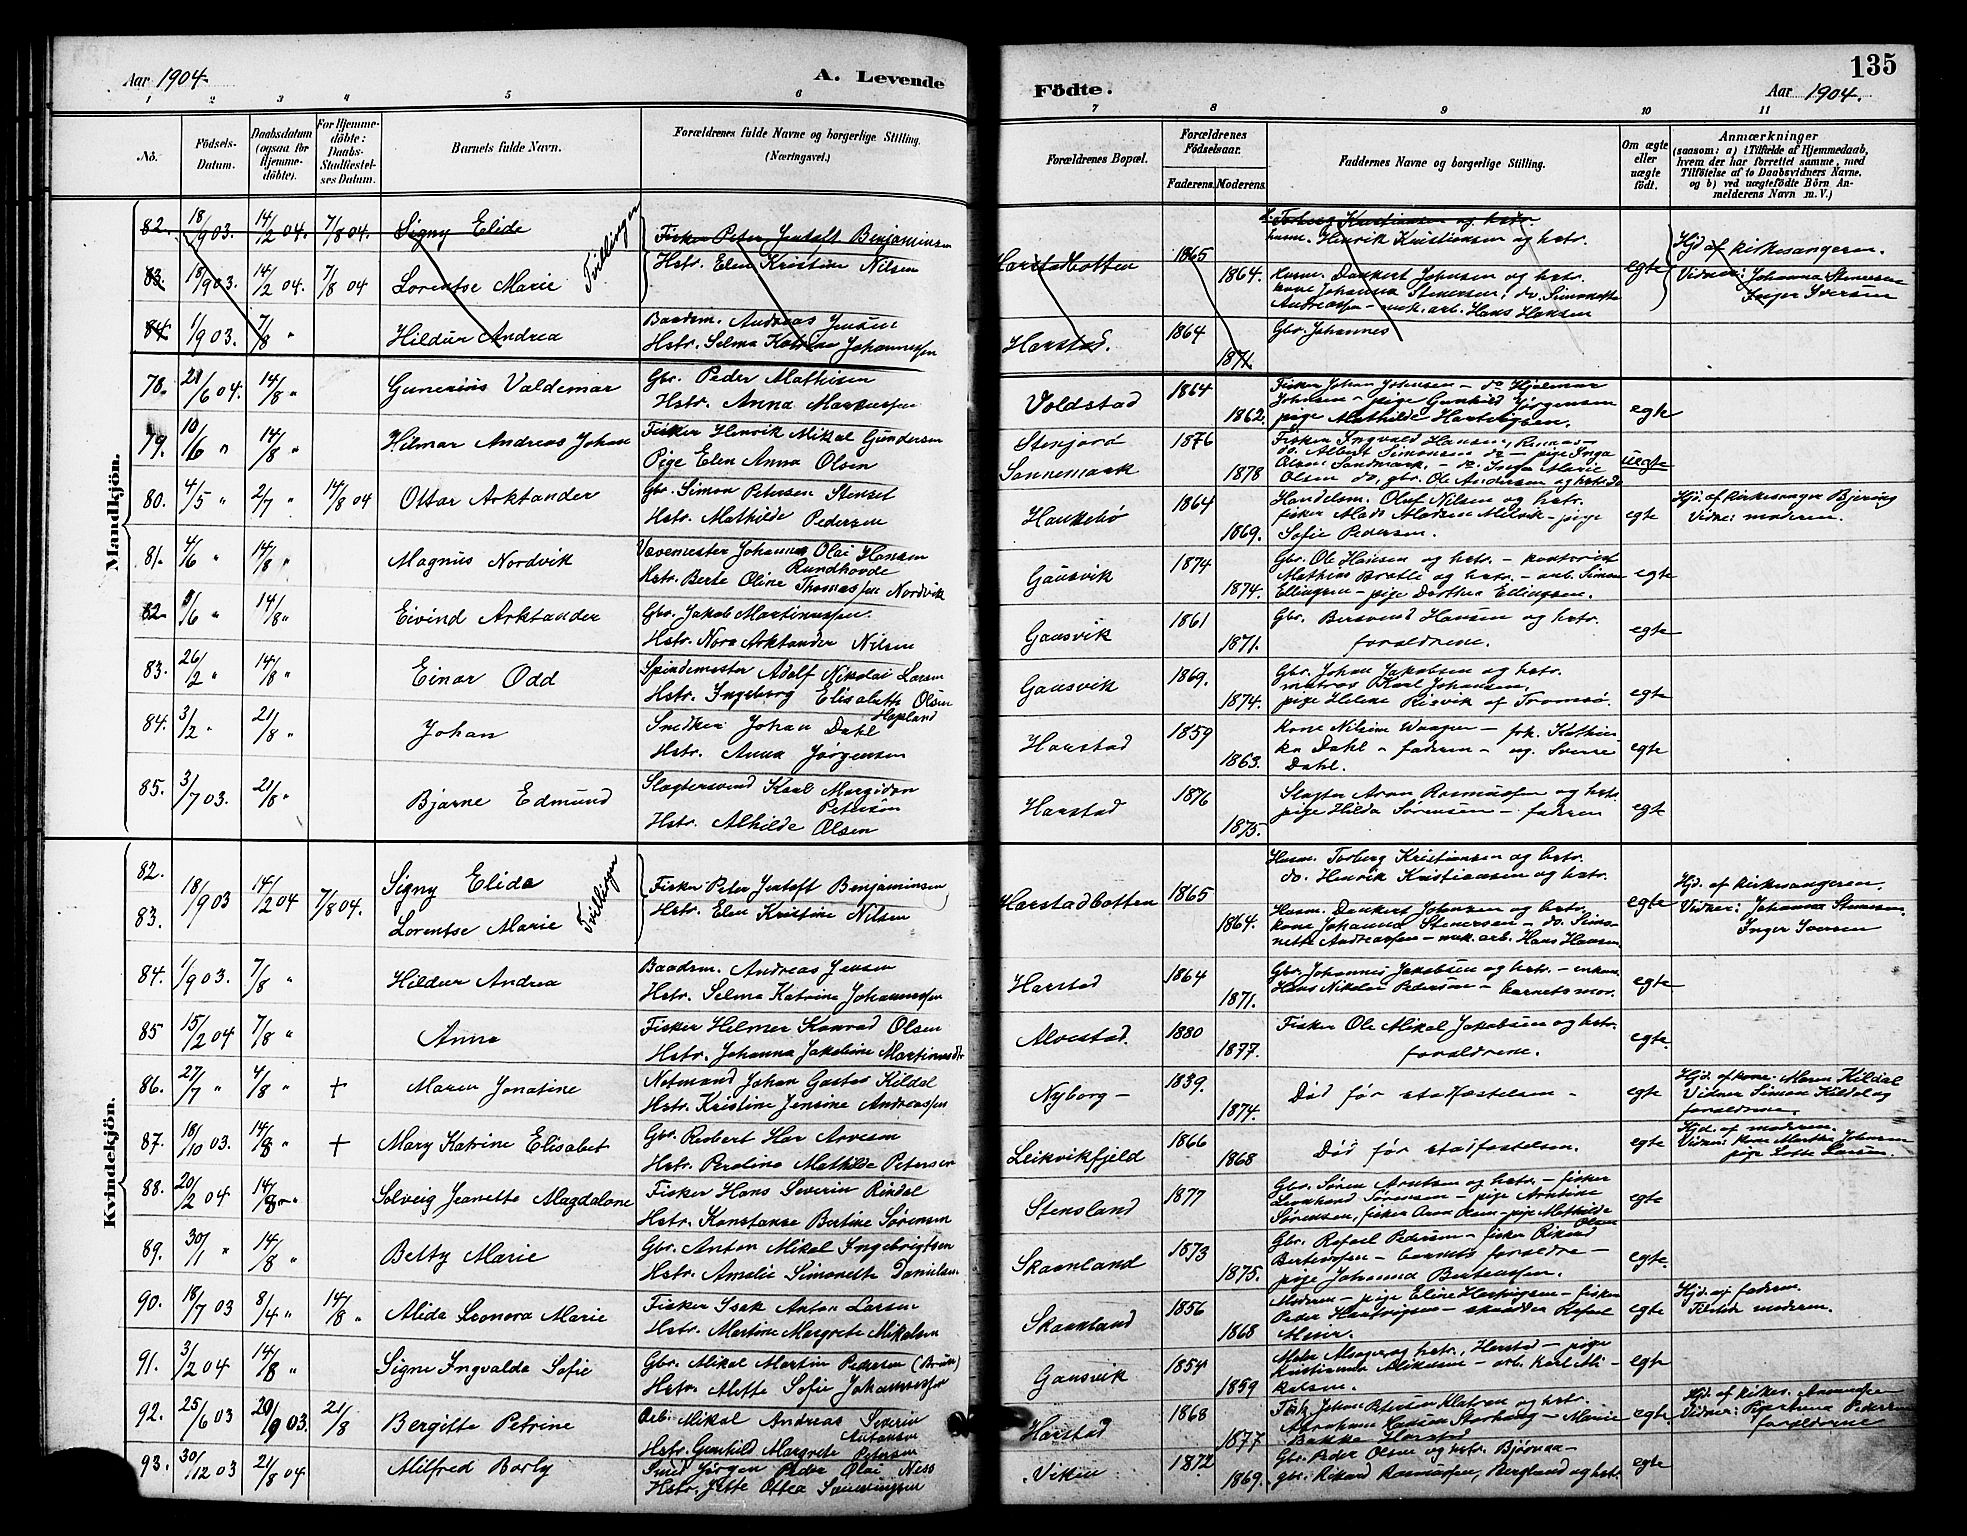 Aar 1904.
A. Levende
Födte.
Aar 1904.
135
1 2 3 4 5 6 7 8 9 10 11
No.
Födsels-Datum.
Daabsdatum (ogsaa for Hjemmedöbte).
For Hjemmedöbte: Daabs-Stadfæstelses Datum.
Barnets fulde Navn.
Forældrenes fulde Navne og borgerlige Stilling. (Næringsvei.)
Forældrenes Bopæl.
Forældrenes Födselsaar.
Faderens. Moderens.
Faddernes Navne og borgerlige Stilling.
Om ægte eller uægte födt.
Anmærkninger
(saasom: a) i Tilfælde af Hjemmedaab, hvem der har forrettet samme, med Tilföielse af to Daabsvidners Navne, og b) ved uægtefödte Börn Anmelderens Navn m. V.)
82. 18/9 03. 14/2 04. 7/8 04. Signy Elide Tvillinger Fisker Peter Jentoft Benjaminsen
Hstr. Elen Kristine Nilsen Harstadbotten 1865 1864.
83. 18/9 03. 14/2 04. 7/8 04 Lorentse Marie
Torberg Kristiansen og hstr.
husm. Henrik Kristiansen og hstr.
husm. Dankert Johnsen og hstr.
kone Johanna Stenersen, do. Simonette
Andreassen - enk. arb. Hans Hansen
egte
Hjd. af kirkesangeren.
Vidner: Johanna Stenersen
Inger Iversen
84. 1/9 03. 7/8 " Hildur Andrea Baadsm. Andreas Jensen
Hstr. Selma Katrine Johannessen Harstad. 1864 1871. Gbr. Johannes
Mandkjön.
78. 21/6 04. 14/8 " Gunerius Valdemar Gbr. Peder Mathisen
Hstr. Anna Markussen Voldstad 1864 1862.
Fisker Johan Johnsen - do Hjalmar
Johnsen - pige Gunhild Jørgensen
pige Mathilde Hartvigsen. egte
79. 10/6 " 14/8 " Hilmar Andreas Johan Fisker Henrik Mikal Gundersen
Pige Elen Anna Olsen
Stenjord Sannemark 1876 1878
Fisker Ingvald Hansen,
do. Albert Simonsen do - pige Inga
Olsen Sandmark. - do. Inga Marie
Olsen do, gbr. Ole Andersen og hstr. do uegte
80. 4/5 " 2/7 " 14/8 04 Ottar Arktander Gbr. Simon Petersen Stenset
Hstr. Mathilde Pedersen Haukebø 1864 1869.
Handelsm. Oluf Nilsen og hstr.
fisker Mads Madsen Melvik - pige
Sofie Pedersen. egte
Hjd. af kirkesanger Bjerving
Vidne: moderen.
81. 4/6 " 14/8 " Magnus Nordvik Vævemester Johannes Olai Hansen
Rundhovde
Hstr. Berte Oline Thomassen Nordvik Gausvik 1874 1874.
Gbr. Ole Hansen og hstr. - kontorist
Mathias Bratli og hstr. - arb. Simon
Ellingsen - pige Dorthea Ellingsen. egte
82. /6 " 14/8 " Eivind Arktander Gbr. Jakob Martinussen.
Hstr. Nora Arktander Nilsen Gausvik 1861 1871.
Gbr. Bersvend Hansen og hstr.
forældrene. egte
83. 26/2 " 14/8 " Einar Odd Spindemester Adolf Nikolai Larsen
Hstr. Ingeborg Elisabeth Olsen
Hopland Gausvik 1869. 1874.
Gbr. Johan Jakobsen og hstr.
matros Karl Johansen.
pige Helene Risvik af Tromsø. egte
84. 3/2 " 21/8 " Johan Snedker Johan Dahl
Hstr. Anna Jørgensen Harstad 1859 1863.
Kone Nilsine Waagen - frk. Kathin-
ka Dahl - faderen - ug. Sverre
Dahl. egte
85. 3/7 03. 21/8 " Bjarne Edmund Slagtersvend Karl Margidon
Petersen
Hstr. Alhilde Olsen Harstad 1876 1875.
Slagter Aron Rasmussen og hstr.
pige Hilda Sørensen - faderen egte
Kvindekjön.
82. 83. 18/9 03 14/2 04 7/8 04. Signy Elida
Lorentse Marie Tvillinger
Fisker Peter Jentoft Benjaminsen
Hstr. Elen Kristine Nilsen Harstadbotten 1865 1864.
Husm. Torberg Kristiansen og hstr.
do. Henrik Kristiansen og hstr.
Husm. Dankert Johnsen og hstr.
kone Johanna Stenersen - do. Simo-
nette Andreassen - enk. arb. Hans Hansen egte
Hjd. af kirkesangeren.
Vidner: Johanna Stenersen.
Inger Iversen
84. 1/9 03. 7/8 " Hildur Andrea Baadsm. Andreas Jensen
Hstr. Selma Katrine Johannessen Harstad 1864 1871.
Gbr. Johannes Jakobsen og hstr. - enkem.
Hans Nikolai Pedersen - barnets mor. egte
85 15/2 04 7/8 " Anna Fisker Hilmer Konrad Olsen
Hstr. Johanna Jakobine Martinusdtr Alvestad. 1880 1877.
Fisker Ole Mikal Jakobsen og hstr.
forældrene. egte.
86. 27/7 " 4/8 " + Maren Jonatine Notmand Johan Gustav Kildal
Hstr. Kristine Jensine Andreassen Nyborg - 1839. 1874.
Död før stadfæstelsen - egte
Hjd. af kone Maren Kildal
Vidner Simson Kildal og
forældrene.
87. 18/10 03. 14/8 " + Mary Katrine Elisabet Gbr. Robert Har Arnesen
Hstr. Paroline Mathilde Petersen Leikvikfjeld 1866 1868
Död før stadfæstelsen. egte
Hjd. af moderen.
Vidner: kone Marthe Johnsen
pige Lotte Larsen.
88. 20/2 04 14/8 " Solveig Jeanette Magdalone Fisker Hans Severin Rindal
Hstr. Konstanse Bertine Sørensen Stensland 1877
Gbr. Søren Arntsen og hstr. - fisker
Leonhard Sørensen - pige Arntine
Sørensen, fisker Aron Olsen - pige Mathilde
Olsen egte
89. 30/1 " 14/8 " Betty Marie Gbr. Anton Mikal Ingebrigtsen
Hstr. Amelie Simonette Danielsen Skaanland 1873 1875.
Gbr. Rafael Pedersen - fisker Rikard
Berteussen - barnets forældre -
pige Johanna Berteussen. egte.
90. 18/7 03 8/4 " 14/8 " Alida Leonora Marie Fisker Isak Anton Larsen
Hstr. Martine Margrete Mikalsen Skaanland 1856 1868
Moderen - pige Eline Hartvigsen - fisker
Peder Hartvigsen - skrædder Rafael
Meier. egte
Hjd. af faderen.
Tilstede moderen.
91. 3/2 04 14/8 " Signe Ingvalda Sofie Gbr. Mikal Martin Pedersen (Bruun)
Hstr. Mette Sofie Johannessen Gausvik 1854 1859
og hstr., Harstad - pige
Kristianna Mikalsen - arb. Karl Mi-
kalsen. egte
92. 25/6 03 20/9 03. 21/8 Bergitte Petrine Arb. Mikal Andreas Severin
Antonsen
Hstr. Gunhild Margrete Petersen Harstad 1868 1877
og hstr.
Abraham Hansen Storberg - Marie
Bakke Harstad egte
Hjd. af kirkes.
Vidner: Pedersen
forældrene
93. 30/12 03 21/8 04 Milfred Borly Smed Jørgen Peder Olai Ness
Hstr. Jette Ottea Viken 1872 1869.
Gbr. Peder Olsen og hstr. Bjørnaa -
gbr. Rikard Rasmussen, Bergland og hstr. egte